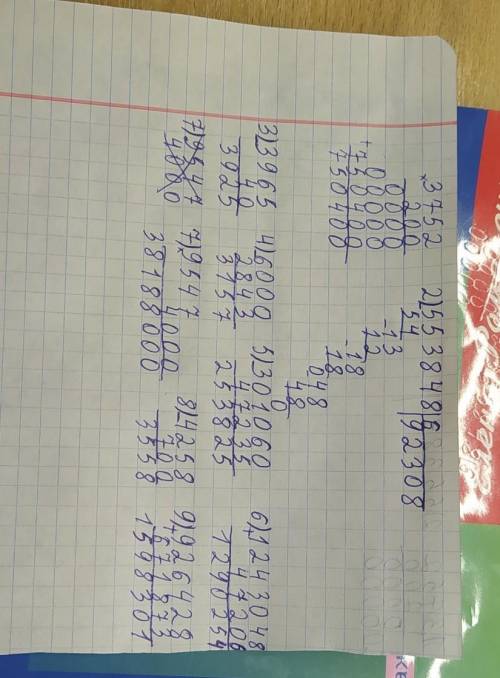 ×3752
200
0000
0000
+7504
750400
2) 553848|6
54 |92308
-13
12
-18
18
048
48
0
3) 3965
40
3925
4) 6000
2843
3157
5) 301060
47235
253825
6) 1243048
+ 47206
1290254
7) 9547
4000
7) 9547
4000
38188000
8) 4258
700
3558
9) 926428
+671873
1598301